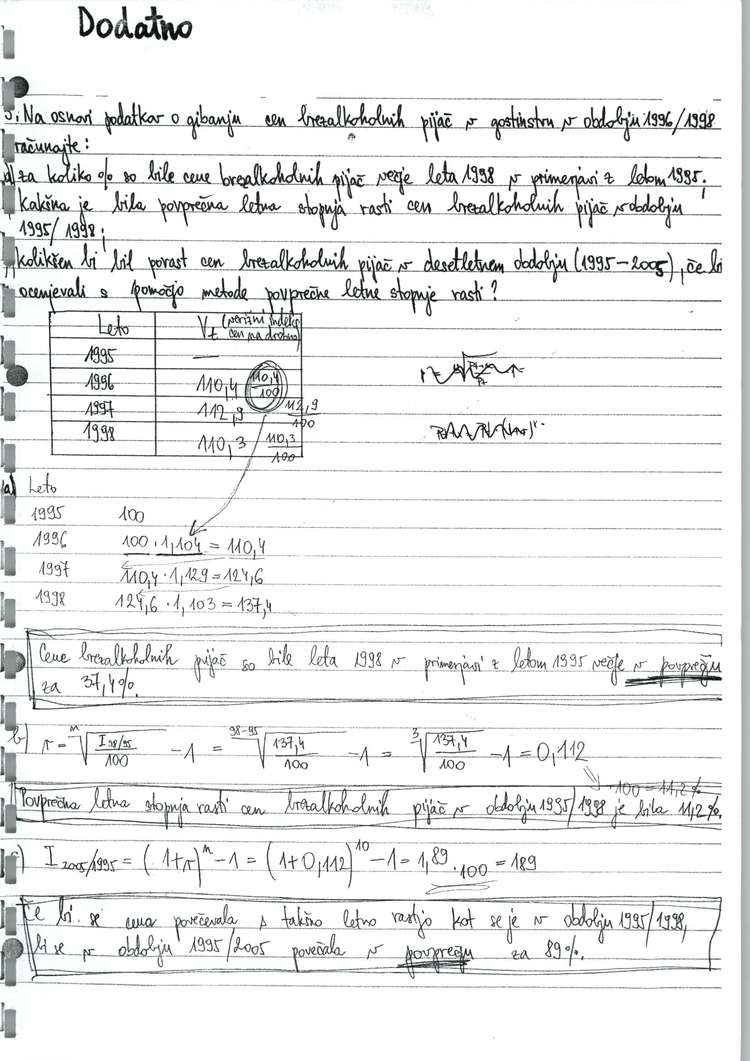 Dodatno
5. Na osnovi podatkov o gibanju cen brezalkoholnih pijač v gostinstvu v obdobju 1996/1998
računajte:
a) za koliko % so bile cene brezalkoholnih pijač večje leta 1998 v primerjavi z letom 1995;
kakšna je bila povprečna letna stopnja rasti cen brezalkoholnih pijač v obdobju
1995/1998;
kolikšen bi bil porast cen brezalkoholnih pijač v desetletnem obdobju (1995-2005), če bi
ocenjevali s pomočjo metode povprečne letne stopnje rasti?
Leto Vt (verižni indeks cen na drobno)
1995 —
1996 110,4 110,4/100
1997 112,9 112,9/100
1998 110,3 110,3/100
a) Leto
1995 100
1996 100 · 1,104 = 110,4
1997 110,4 · 1,129 = 124,6
1998 124,6 · 1,103 = 137,4
Cene brezalkoholnih pijač so bile leta 1998 v primerjavi z letom 1995 večje v povprečju
za 37,4%.
b) r = ⁿ√(I 98/95 / 100) - 1 = ⁹⁸⁻⁹⁵√(137,4/100) - 1 = ³√(137,4/100) - 1 = 0,112
· 100 = 11,2%
Povprečna letna stopnja rasti cen brezalkoholnih pijač v obdobju 1995/1998 je bila 11,2%.
c) I 2005/1995 = (1+r)ⁿ - 1 = (1+0,112)¹⁰ - 1 = 1,89 · 100 = 189
Če bi se cena povečevala s takšno letno rastjo kot se je v obdobju 1995/1998,
bi se v obdobju 1995/2005 povečala v povprečju za 89%.